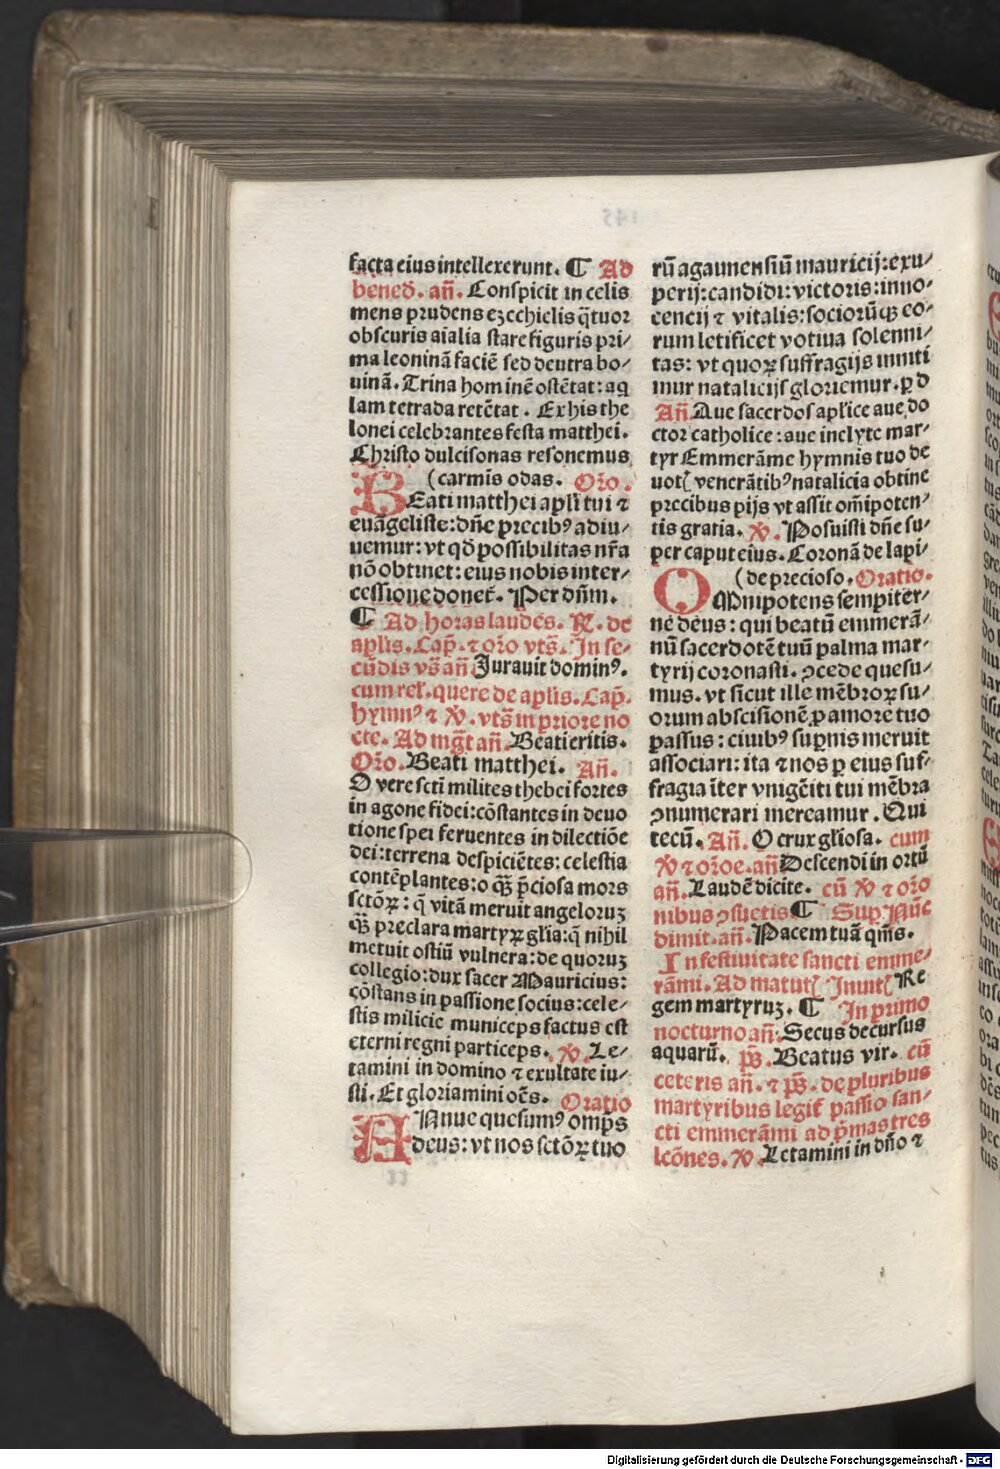 facta eius intellexerunt. ¶ Ad
bened. añ. Conspicit in celis
mens prudens ezechielis q̃tuor
obscuris aialia stare figuris pri⸗
ma leoninã faciẽ sed deutra bo⸗
uinã. Trina hominẽ ostẽtat: aq̃
lam tetrada retẽtat. Ex his the
lonei celebrantes festa matthei.
Christo dulcisonas resonemus
(carmis odas. Oro.
BEati matthei apl̃i tui ⁊
euãgeliste: dñe precibꝰ adiu⸗
uemur: vt qd̃ possibilitas nr̃a
nõ obtinet: eius nobis inter⸗
cessione donet̃. Per dñm.
¶ Ad horas laudes. R̃. de
apl̃is. Cap̃. ⁊ oro vts̃. In se⸗
cũdis vs̃ añ Jurauit dominꝰ.
cum rel̃. quere de apl̃is. Cap̃.
hymnꝰ ⁊ ℣. vts̃ in priore no
cte. Ad mg̃t añ. Beati eritis.
Oro. Beati matthei. Añ.
O vere scti milites thebei fortes
in agone fidei: cõstantes in deuo
tione spei feruentes in dilectiõe
dei: terrena despiciẽtes: celestia
contẽplantes: o q̃ꝫ p̃ciosa mors
sctõꝝ: q̃ vitã meruit angeloruꝫ
q̃ꝫ preclara martyꝝ gl̃ia: q̃ nihil
metuit ostiũ vulnera: de quoruꝫ
collegio: dux sacer Mauricius:
cõstans in passione socius: cele⸗
stis milicie municeps factus est
eterni regni particeps. ℣. Le⸗
tamini in domino ⁊ exultate iu⸗
sti. Et gloriamini oẽs. Oratio
ANnue quesumꝰ omp̃s
deus: vt nos sctõꝝ tuo
rũ agaunensiũ mauricij: exu⸗
perij: candidi: victoris: inno⸗
cencij ⁊ vitalis: sociorũqꝫ eo⸗
rum letificet votiua solenni⸗
tas: vt quoꝝ suffragijs inniti
mur natalicijs gloriemur. ꝑ d
Añ. Aue sacerdos apl̃ice aue do
ctor catholice: aue inclyte mar⸗
tyr Emmerãme hymnis tuo de
uotꝭ venerãtibꝰ natalicia obtine
precibus pijs vt assit om̃ipoten⸗
tis gratia. ℣. Posuisti dñe su⸗
per caput eius. Coronã de lapi⸗
(de precioso. Oratio.
OMnipotens sempiter⸗
ne deus: qui beatũ emmerã⸗
nũ sacerdotẽ tuũ palma mar⸗
tyrij coronasti. ꝯcede quesu⸗
mus. vt sicut ille mẽbroꝝ su⸗
orum abscisionẽ ꝑ amore tuo
passus: ciuibꝰ suꝑnis meruit
associari: ita ⁊ nos ꝑ eius suf⸗
fragia ĩter vnigẽiti tui mẽbra
ꝯnumerari mereamur. Qui
tecũ. Añ. O crux gl̃iosa. cum
℣ ⁊ orõe. añ Descendi in ortũ
añ. Laudẽ dicite. cũ ℣ ⁊ orõ
nibus ꝯsuetis ¶ Suꝑ Nũc
dimit. añ. Pacem tuã qm̃s.
In festiuitate sancti emme⸗
rãmi. Ad matutꝭ Inuitꝭ Re
gem martyruꝫ. ¶ In primo
nocturno añ. Secus decursus
aquarũ. p̃s. Beatus vir. cũ
ceteris añ. ⁊ p̃s. de pluribus
martyribus legit̃ passio san⸗
cti emmerãmi ad p̃mas tres
lcõnes. ℣. Letamini in dño ⁊
Digitalisierung gefördert durch die Deutsche Forschungsgemeinschaft - DFG